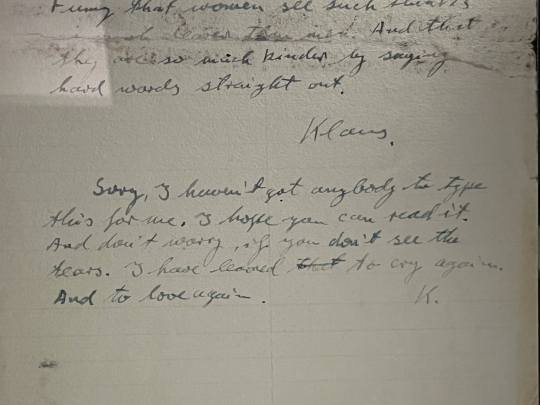 Funny that women see such
clearer than men. And that
they are so much kinder by saying
hard words straight out.
Klaus.
Sorry, I haven't got anybody to type
this for me. I hope you can read it.
And don't worry, if you don't see the
tears. I have learned that to cry again.
And to love again.
K.